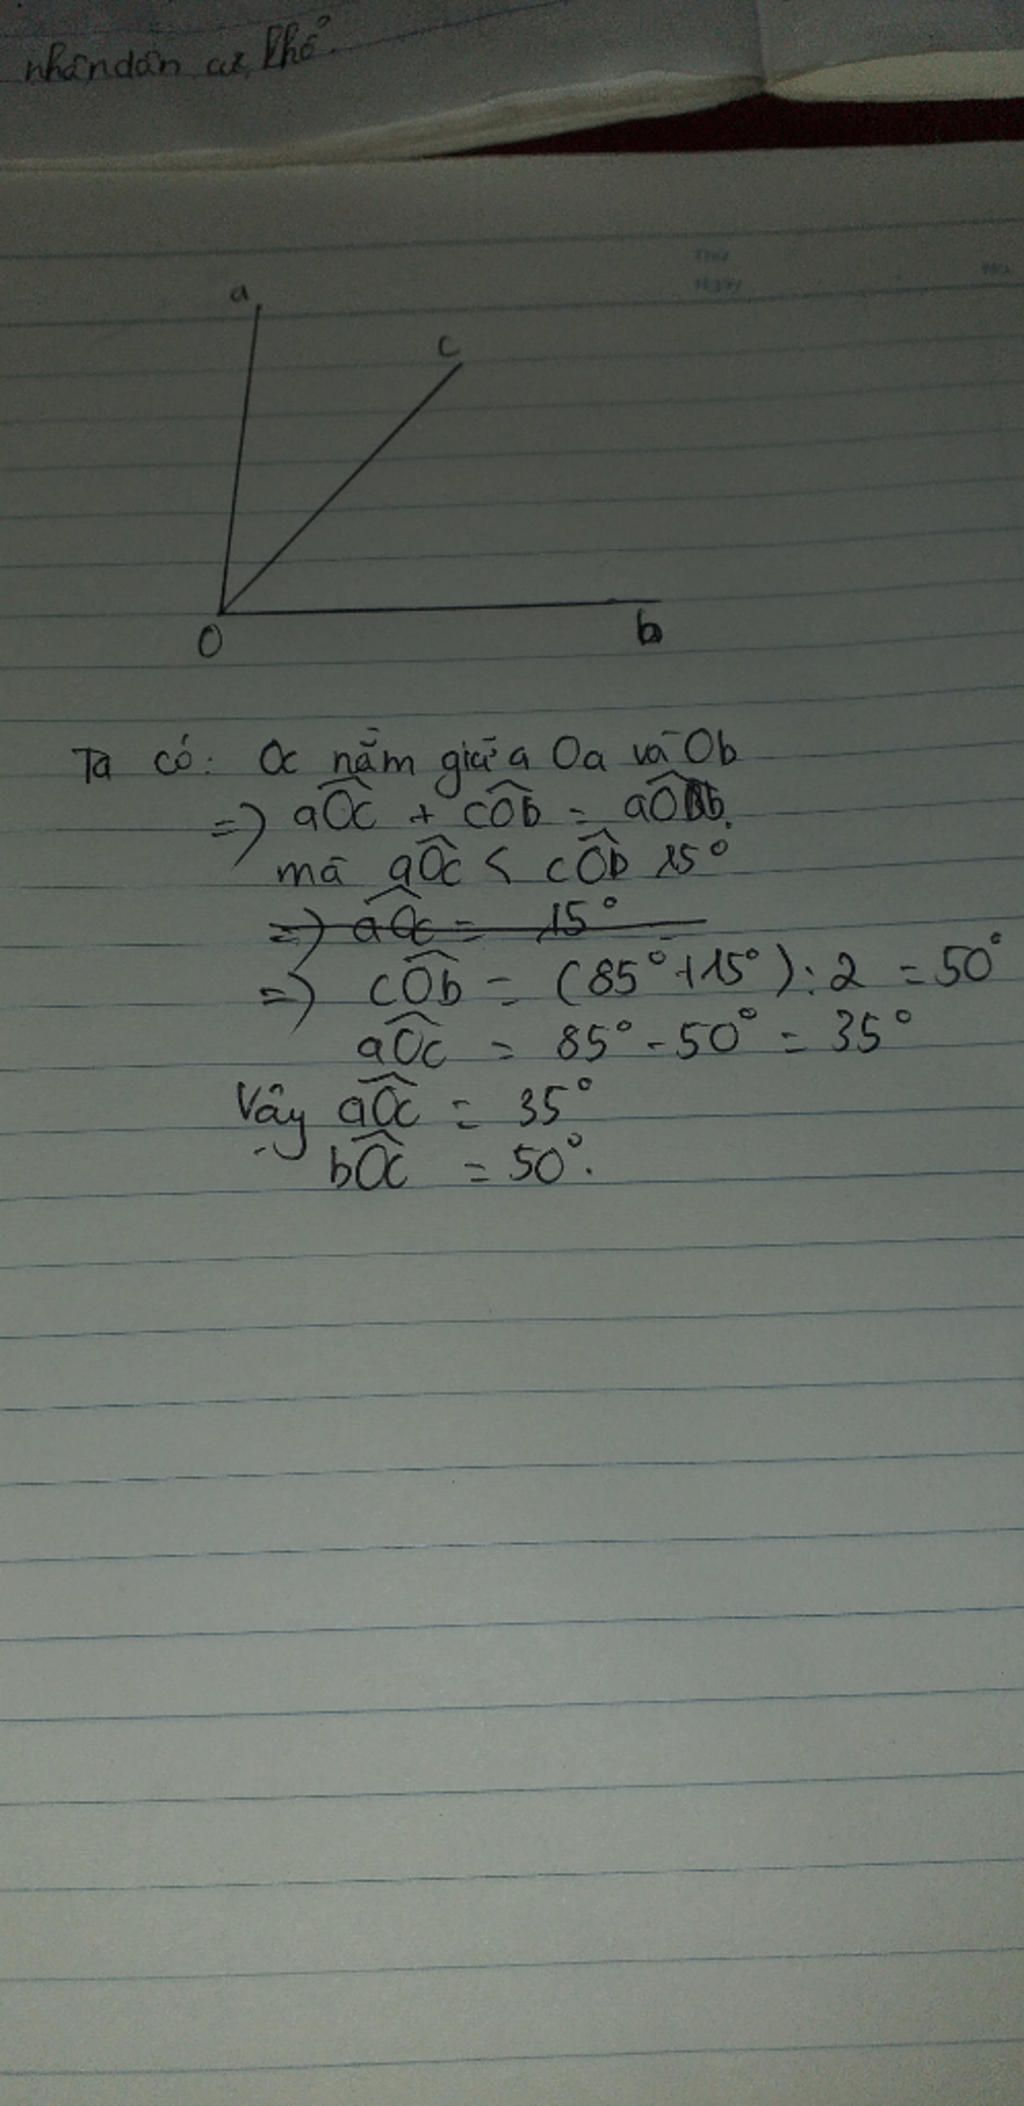 nhân dân cực khổ.
Thứ
Ngày
No.
a
c
O
b
Ta có: Oc nằm giữa Oa và Ob
=) aÔc + cÔb = aÔb.
mà aÔc < cÔb 15°
=) aÔc = 15°
=) cÔb = (85° + 15°) : 2 = 50°
aÔc = 85° - 50° = 35°
Vậy aÔc = 35°
bÔc = 50°.